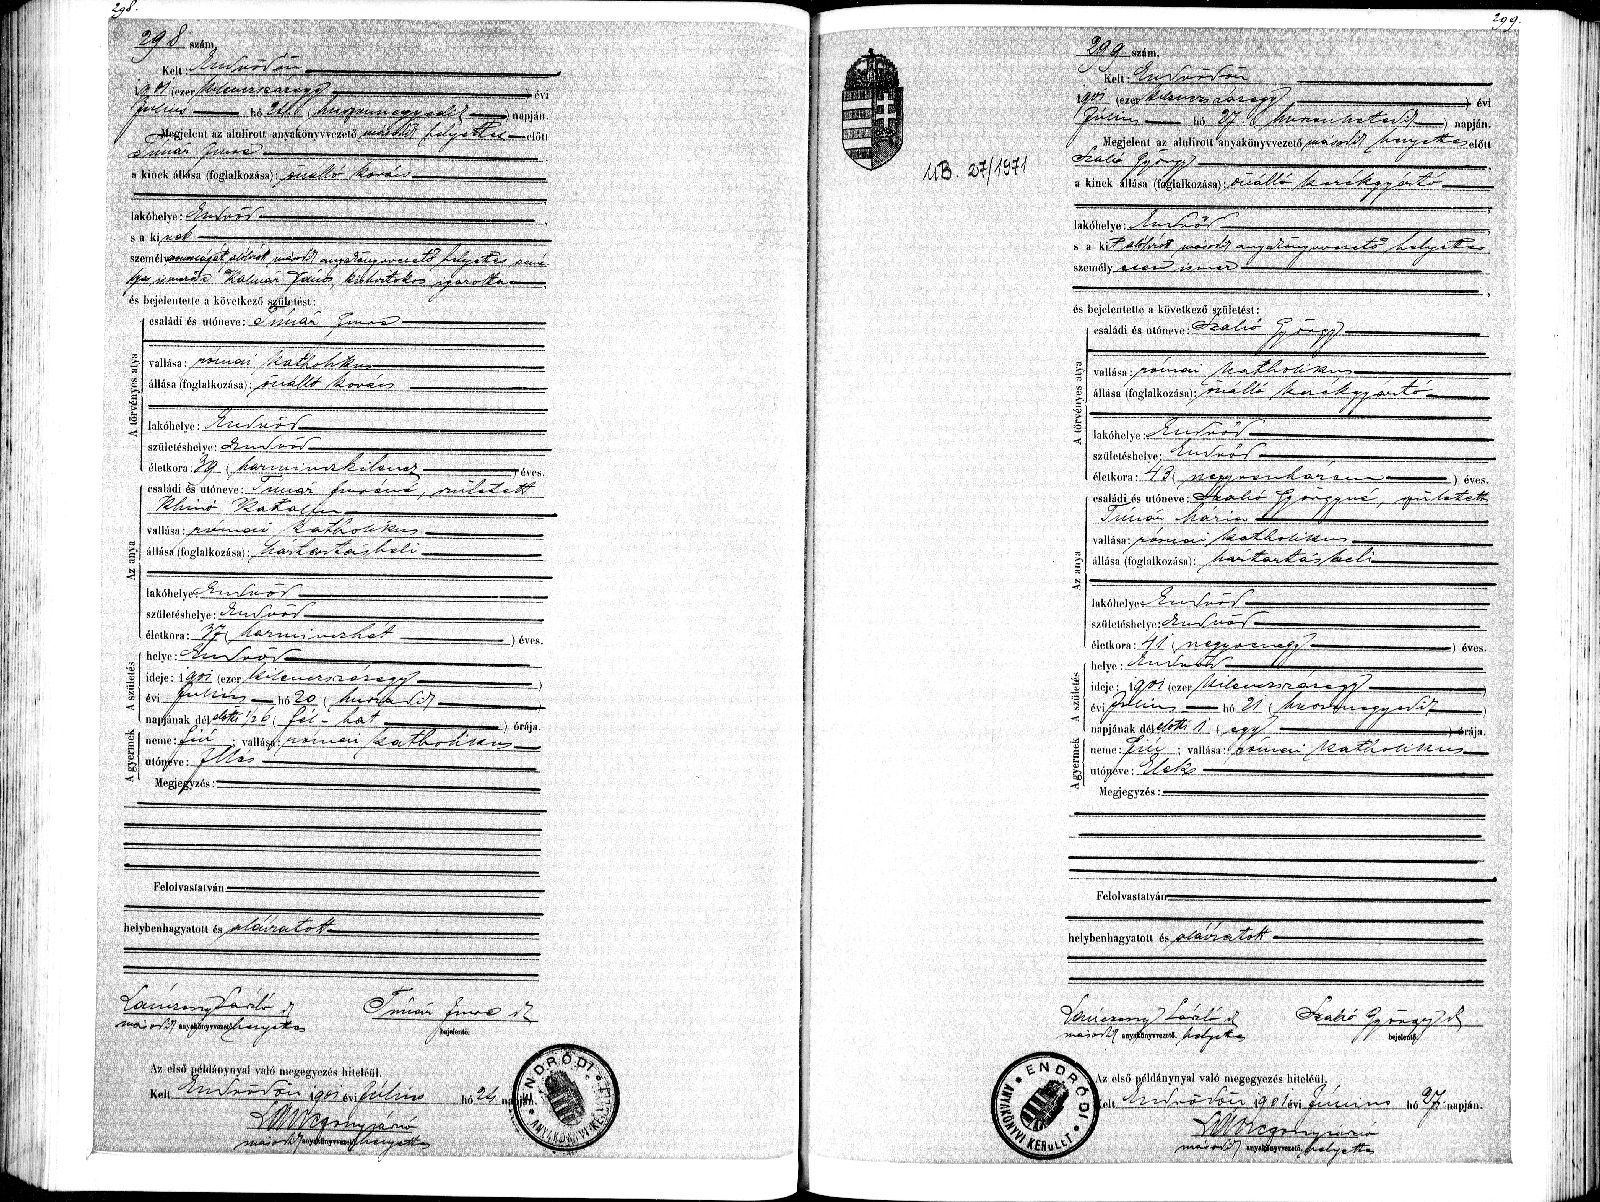 298.
298 szám.
Kelt Endrődön
1901 (ezer kilenczszázegy) évi
Július hó 24. (huszonnegyedik) napján.
Megjelent az alulirott anyakönyvvezető másod helyettes előtt
Tímár Imre
a kinek állása (foglalkozása): önálló kovács
lakóhelye: Endrőd
s a kinek
személyazonosságát alólirt másod anyakönyvvezető helyettes
ismerős Kalmár János kisbirtokos igazolta
és bejelentette a következő születést:
A törvényes atya
családi és utóneve: Tímár Imre
vallása: római katholikus
állása (foglalkozása): önálló kovács
lakóhelye: Endrőd
születéshelye: Endrőd
életkora: 39 (harminczkilencz) éves.
Az anya
családi és utóneve: Tímár Imréné, született
Katalin
vallása: római katholikus
állása (foglalkozása): háztartásbeli
lakóhelye: Endrőd
születéshelye: Endrőd
életkora: (harminczhat) éves.
A születés
helye: Endrőd
ideje: 1901 (ezer kilenczszázegy)
évi Július hó 20 (huszadik)
napjának dél előtti 1/2 6 (fél-hat) órája.
A gyermek
neme: fiú; vallása: római katholikus
utóneve: Illés
Megjegyzés:
Felolvastatván
helybenhagyatott és aláiratott
László
másod anyakönyvvezető helyettes
Tímár Imre
bejelentő.
Az első példánynyal való megegyezés hiteléül.
Kelt Endrődön 1901 évi Július hó 24 napján.
másod anyakönyvvezető helyettes
ENDRŐDI
299.
299 szám.
Kelt: Endrődön
1901 (ezer kilenczszázegy) évi
Július hó 27. (huszonhetedik) napján.
Megjelent az alulirott anyakönyvvezető másod helyettes előtt
Szabó György
a kinek állása (foglalkozása): önálló kerékgyártó
lakóhelye: Endrőd
s a kit alólirt másod anyakönyvvezető helyettes
személyesen ismer
és bejelentette a következő születést:
A törvényes atya
családi és utóneve: Szabó György
vallása: római katholikus
állása (foglalkozása): önálló kerékgyártó
lakóhelye: Endrőd
születéshelye: Endrőd
életkora: 43 (negyvenhárom) éves.
Az anya
családi és utóneve: Szabó Györgyné, született
Tímár Mária
vallása: római katholikus
állása (foglalkozása): háztartásbeli
lakóhelye: Endrőd
születéshelye: Endrőd
életkora: 41 (negyvenegy) éves.
A születés
helye: Endrőd
ideje: 1901 (ezer kilenczszázegy)
évi Július hó 21 (huszonegyedik)
napjának dél előtti 1 (egy) órája.
A gyermek
neme: fiú; vallása: római katholikus
utóneve: Elek
Megjegyzés:
Felolvastatván
helybenhagyatott és aláiratott
László
másod anyakönyvvezető helyettes
Szabó György
bejelentő.
Az első példánynyal való megegyezés hiteléül.
Kelt Endrődön 1901 évi Július hó 27. napján.
másod anyakönyvvezető, helyettes
ENDRŐDI ANYAKÖNYVI KERÜLET
MB. 27/1971